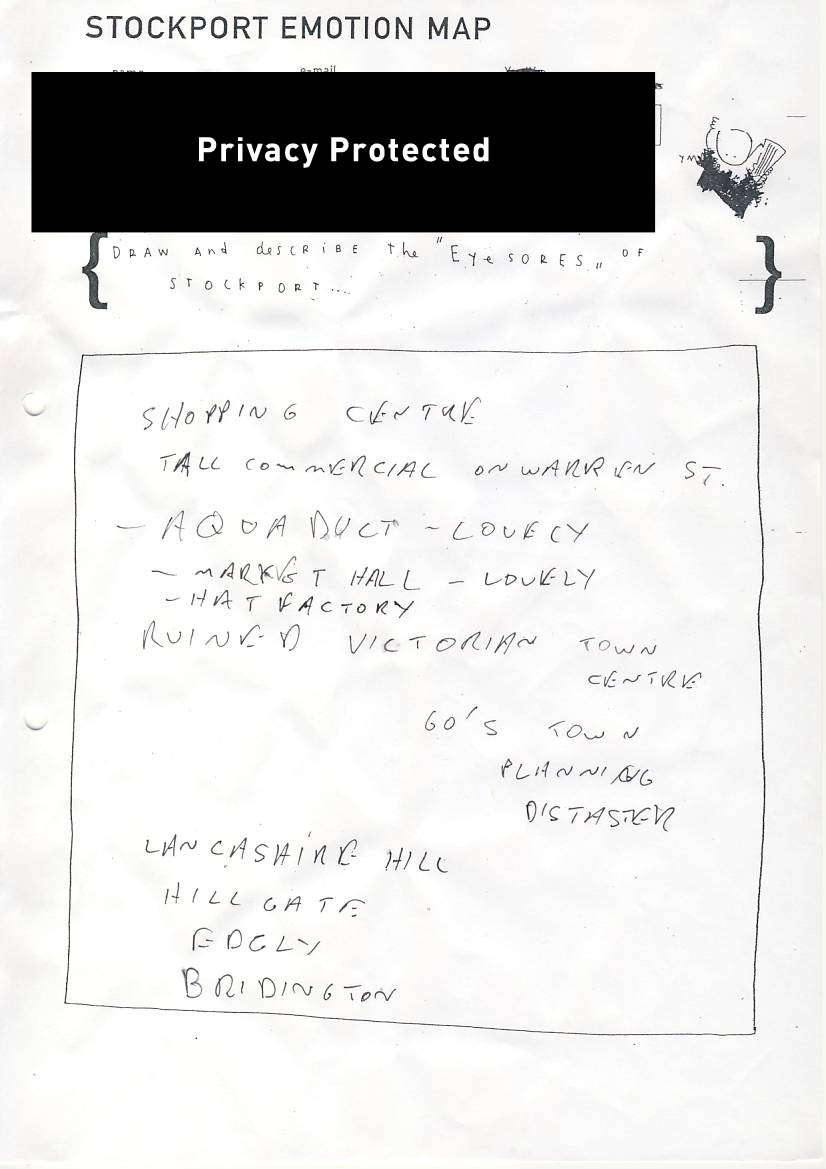 STOCKPORT EMOTION MAP
name e-mail
Privacy Protected
DRAW and desCRIBE the "EyeSORES" OF
STOCKPORT...
SHOPPING CENTRE
TALL COMMERCIAL ON WARREN ST.
- AQUADUCT - LOVELY
- MARKET HALL - LOVELY
- HAT FACTORY
RUINED VICTORIAN TOWN
CENTRE
60'S TOWN
PLANNING
DISTASTER
LANCASHIRE HILL
HILL GATE
EDGLY
BRIDINGTON